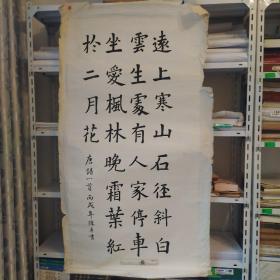 遠上寒山石径斜白
雲生處有人家停車
坐愛楓林晚霜葉紅
於二月花
唐詩一首丙戌年